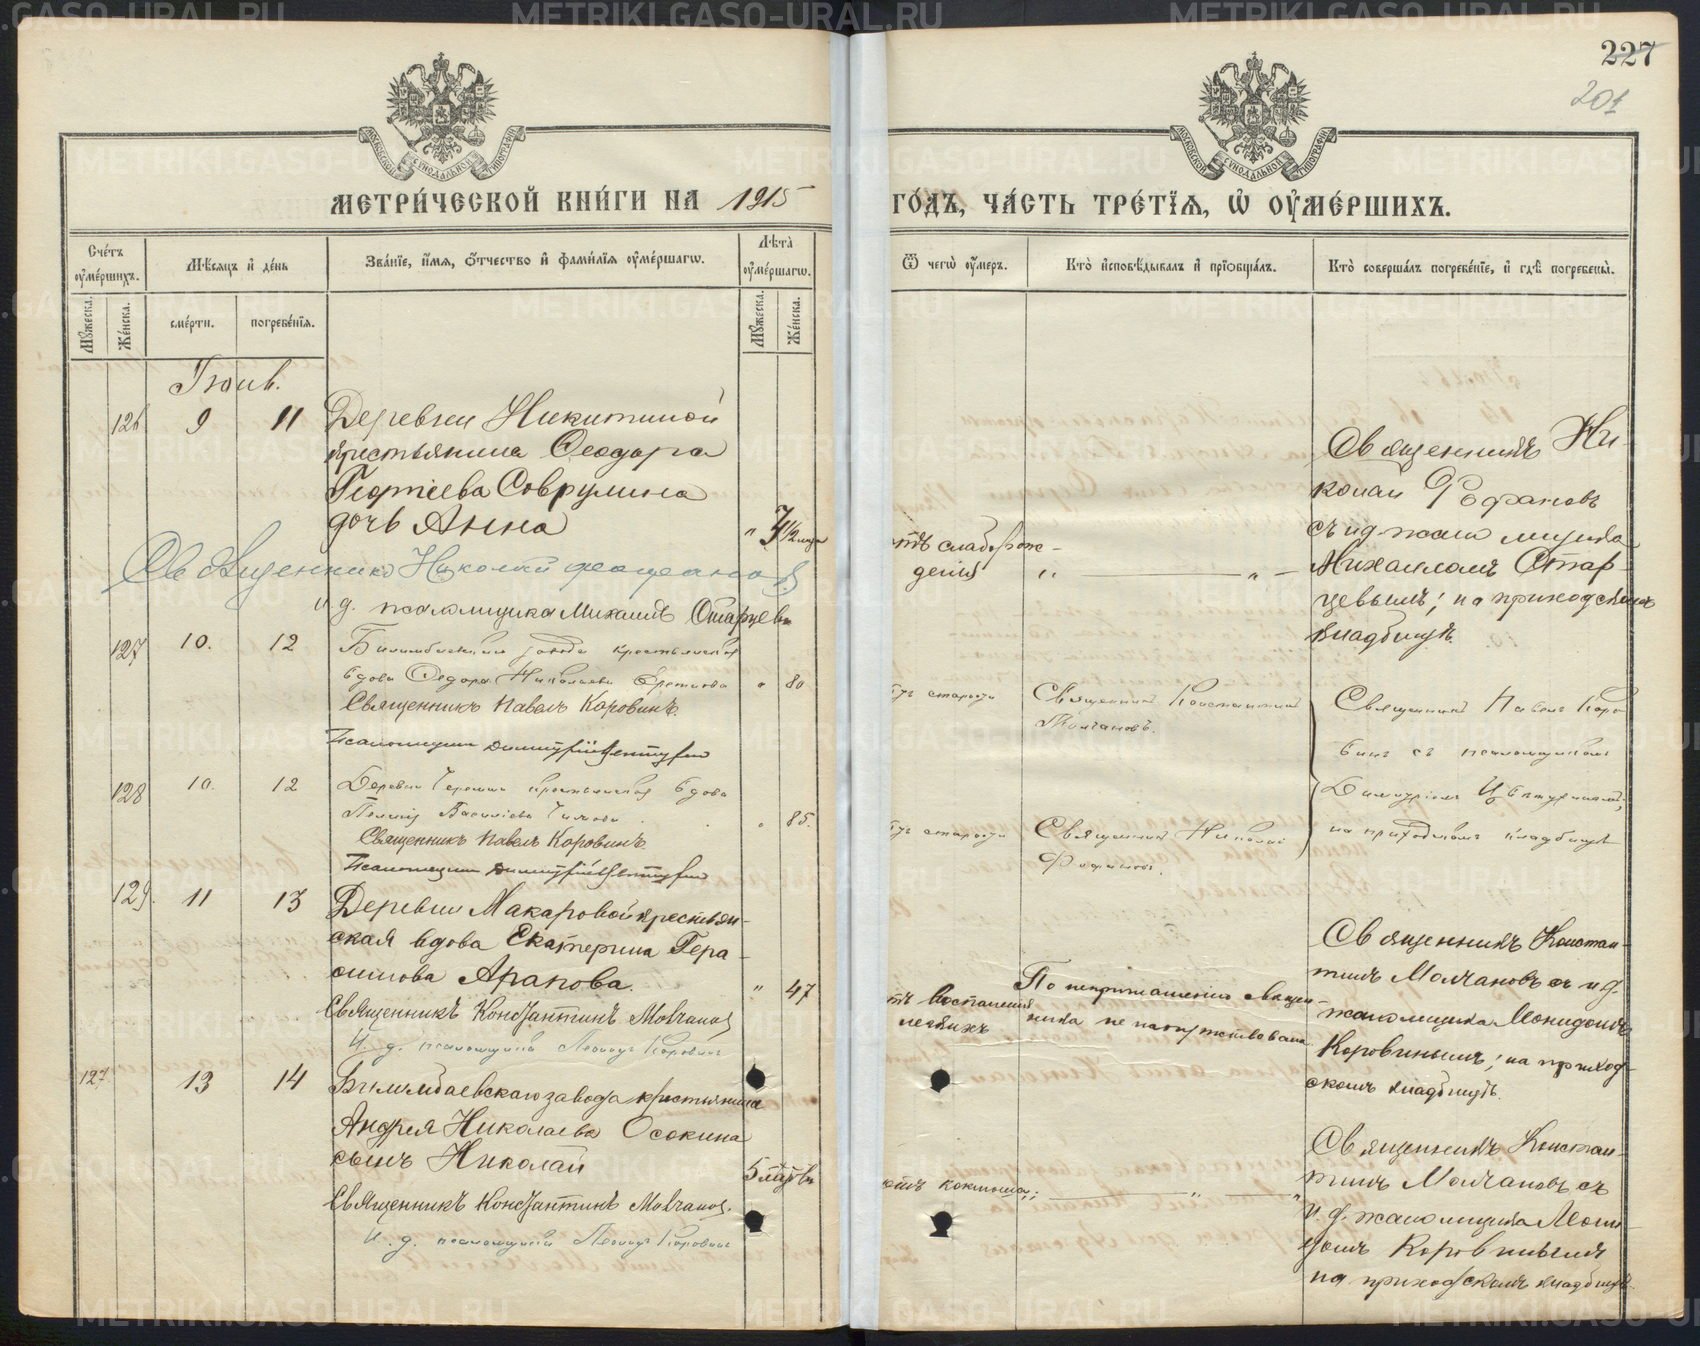 METRIKI.GASO-URAL.RU
227
201
МОСКОВСКОЙ СѴНОДАЛЬНОЙ ТИПОГРАФІИ
МЕТРИ́ЧЕСКОЙ КНИ́ГИ НА 1915
ГО́ДЪ, ЧА́СТЬ ТРЕ́ТЇѦ, Ѡ҆ ОУ҆МЕ́РШИХЪ.
Сче́тъ оу҆ме́ршихъ.
Мѣ́сѧцъ и҆ де́нь
Зва́нїе, и҆́мѧ, ѻ҆́тчество и҆ фами́лїѧ оу҆ме́ршагѡ.
Лѣ̀та оу҆ме́ршагѡ.
Ѿ чегѡ̀ оу҆́меръ.
Кто̀ и҆сповѣ́дывалъ и҆ прїѡбща́лъ.
Кто̀ соверша́лъ погребе́нїе, и҆ гдѣ̀ погребены̀.
Мꙋ́жеска.
Же́нска.
сме́рти.
погребе́нїѧ.
Мꙋ́жеска.
Же́нска.
Іюнь.
126 9 11 Деревни Никитиной
крестьянина Ѳеодора
Георгіева Соврулина
дочь Анна
Священникъ Николай
и. д. псаломщика Михаилъ Старцевъ
отъ слаборож-
денія
Священникъ Ни-
колай Фофановъ
съ и д. псаломщика
Михаиломъ Стар-
цевымъ; на приходскомъ
кладбищѣ.
127 10. 12 Билимбаевскаго завода крестьянская
вдова Ѳедора Николаева " 80
Священникъ Павелъ Коровинъ.
Псаломщикъ Димитрій
отъ старости
Священникъ Константинъ
Молчановъ.
Священникъ Павелъ Коро
винъ съ псаломщикомъ
Димитріемъ
на приходскомъ кладбищѣ
128 10. 12 Деревни крестьянская вдова
Васильева " 85.
Священникъ Павелъ Коровинъ
Псаломщикъ Димитрій
отъ старости
Священникъ Николай
Фофановъ.
129. 11 13 Деревни Макаровой крестьян-
ская вдова Екатерина Гера-
симова Арапова. " 47
Священникъ Константинъ Молчановъ
И. д. псаломщика Леонидъ Коровинъ
отъ воспаленія
легкихъ
По неприглашенію священ-
ника не напутствована.
Священникъ Констан-
тинъ Молчановъ съ и д.
псаломщика Леонидомъ
Коровинымъ; на приход-
скомъ кладбищѣ.
127. 13 14 Билимбаевскаго завода крестьянина
Андрея Николаева Осокина
сынъ Николай 5 мѣсяцевъ
Священникъ Константинъ Молчановъ.
И. д. псаломщика Леонидъ Коровинъ
отъ коклюша;
Священникъ Констан-
тинъ Молчановъ съ
и. д. псаломщика Леони-
домъ Коровинымъ
на приходскомъ кладбищѣ.